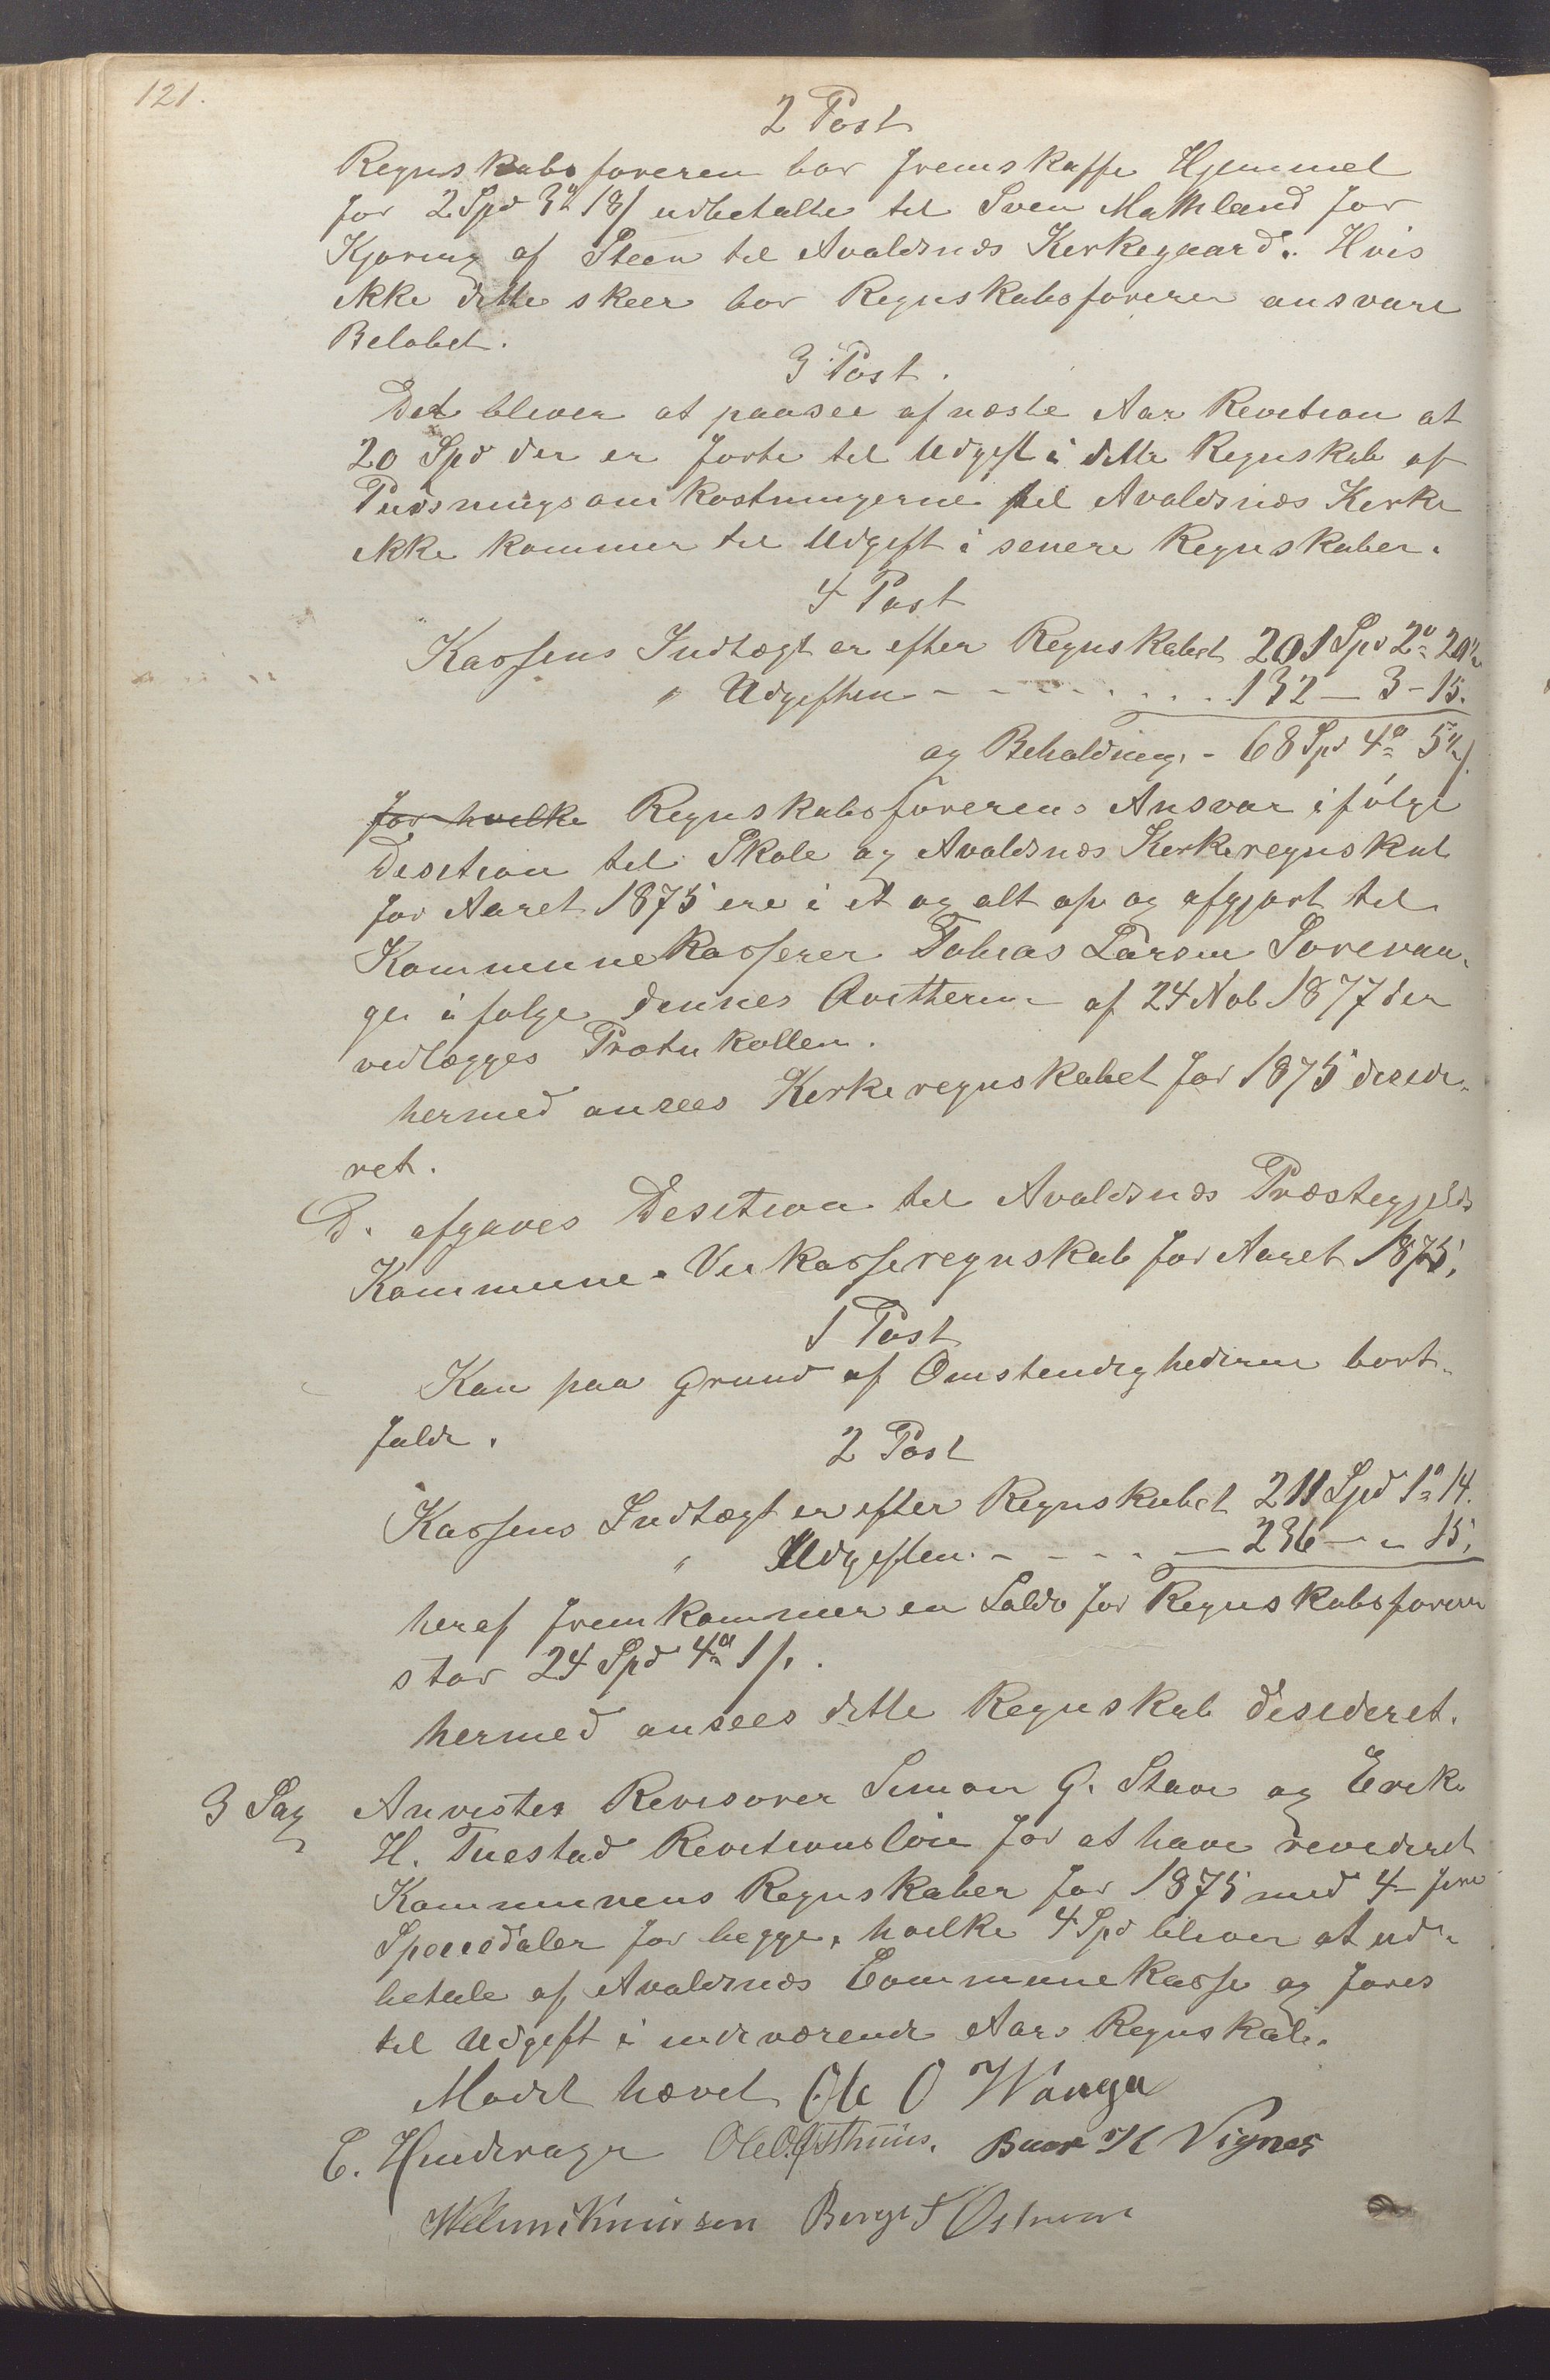 121.
2 Post
Regnskabsföreren bör fremskaffe Hjemmel
for 2 Spd 3 18/ udbetalte til Sven Mathland for
Kjöring af Steen til Avaldsnæs Kirkegaard. Hvis
ikke dette skeer bör Regnskabsföreren ansvare
Belöbet.
3 Post.
Det bliver at paasee af næste Aar Revition at
20 Spd der er förte til Udgift i dette Regnskab af
Pudsningsomkostningerne til Avaldsnæs Kirke
ikke kommer til Udgift i senere Regnskaber.
4 Post
Kassens Indtægt er efter Regnskabet 201 Spd 2 20
" Udgiften - - - - - 132 - 3 - 15.
og Beholdning - 68 Spd 4 5
for hvilke Regnskabsförerens Ansvar ifölge
Desition til Skole og Avaldsnæs Kirkeregnskab
for Aaret 1875 ere i et og alt op og afgjort til
Kommunekasserer Tobias Larsen Sörevaa-
ge ifölge dennes Qvitterin- af 24 Nob 1877 der
vedlægges Protukollen.
hermed ansees Kirkeregnskabet for 1875 deside-
ret.
D. afgaves Desition til Avaldsnæs Præstegjelds
Kommune Veikasseregnskab for Aaret 1875,
1 Post
Kan paa Grund af Omstendighederne bort-
falde.
2 Post
Kassens Indtægt er efter Regnskabet 211 Spd 1 14.
" Udgiften. - - - - - 236 - - 15,
heraf fremkommer en Saldo for Regnskabsförer
stor 24 Spd 4 1/.
hermed ansees dette Regnskab desideret.
3 Sag Anvistes Revisorer Simon G. Stave og Erik
H. Tuestad Revitionslön for at have revideret
Kommunens Regnskaber for 1875 med 4- fire
Speciedaler for begge, hvilke 4 Spd bliver at ud-
betale af Avaldsnæs Communekasse og föres
til Udgift i indeværende Aars Regnskab.
Mödet hævet Ole O Wånge
E. Hinderager Ole O. Østhuus. Baar K Vignes
Knudsen Børge Østrem